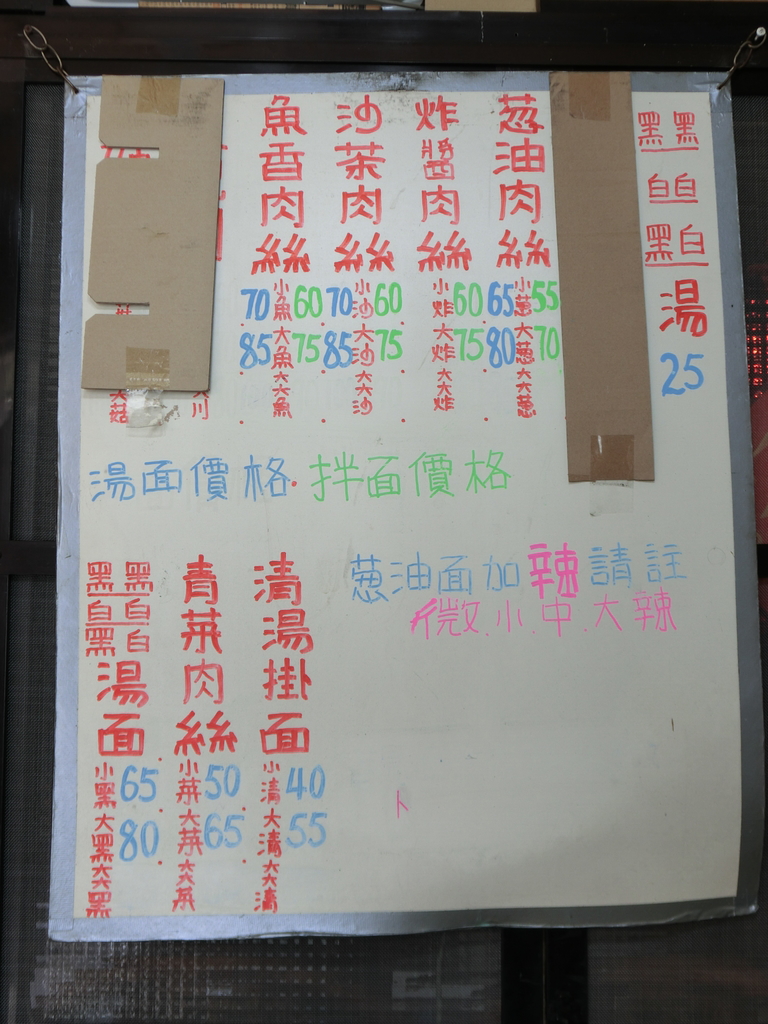 魚香肉絲
70 小魚 60
85 大魚 75
大大魚
沙茶肉絲
70 小沙 60
85 大沙 75
大大沙
炸醬肉絲
小炸 60
大炸 75
大大炸
葱油肉絲
65 小葱 55
80 大葱 70
大大葱
黑黑
白白
黑白
湯
25
大菇
川
湯面價格.拌面價格
黑黑
白白
黑白
湯面
小黑 65
大黑 80
大大黑
青菜肉絲
小菜 50
大菜 65
大大菜
清湯掛面
小清 40
大清 55
大大清
葱油面加辣請註
微.小.中.大辣